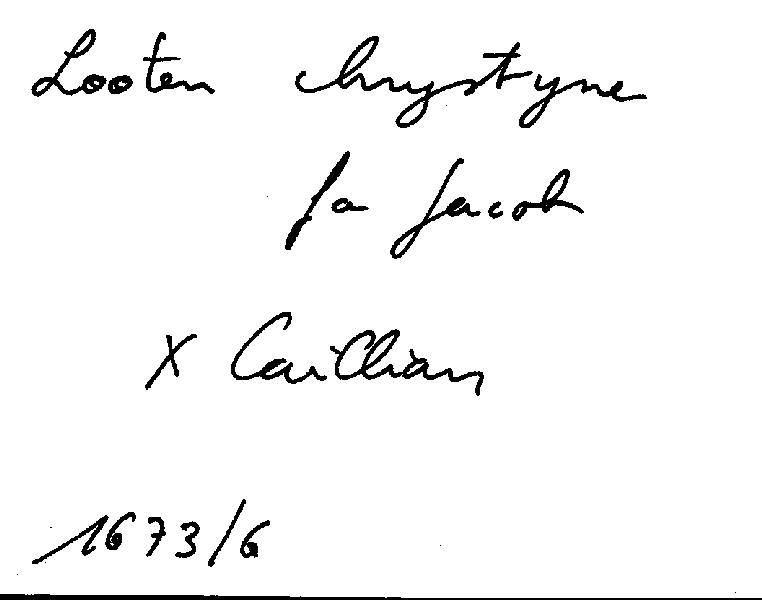 Looten Chrystyne
fa Jacob
x Cailliau
1673/6